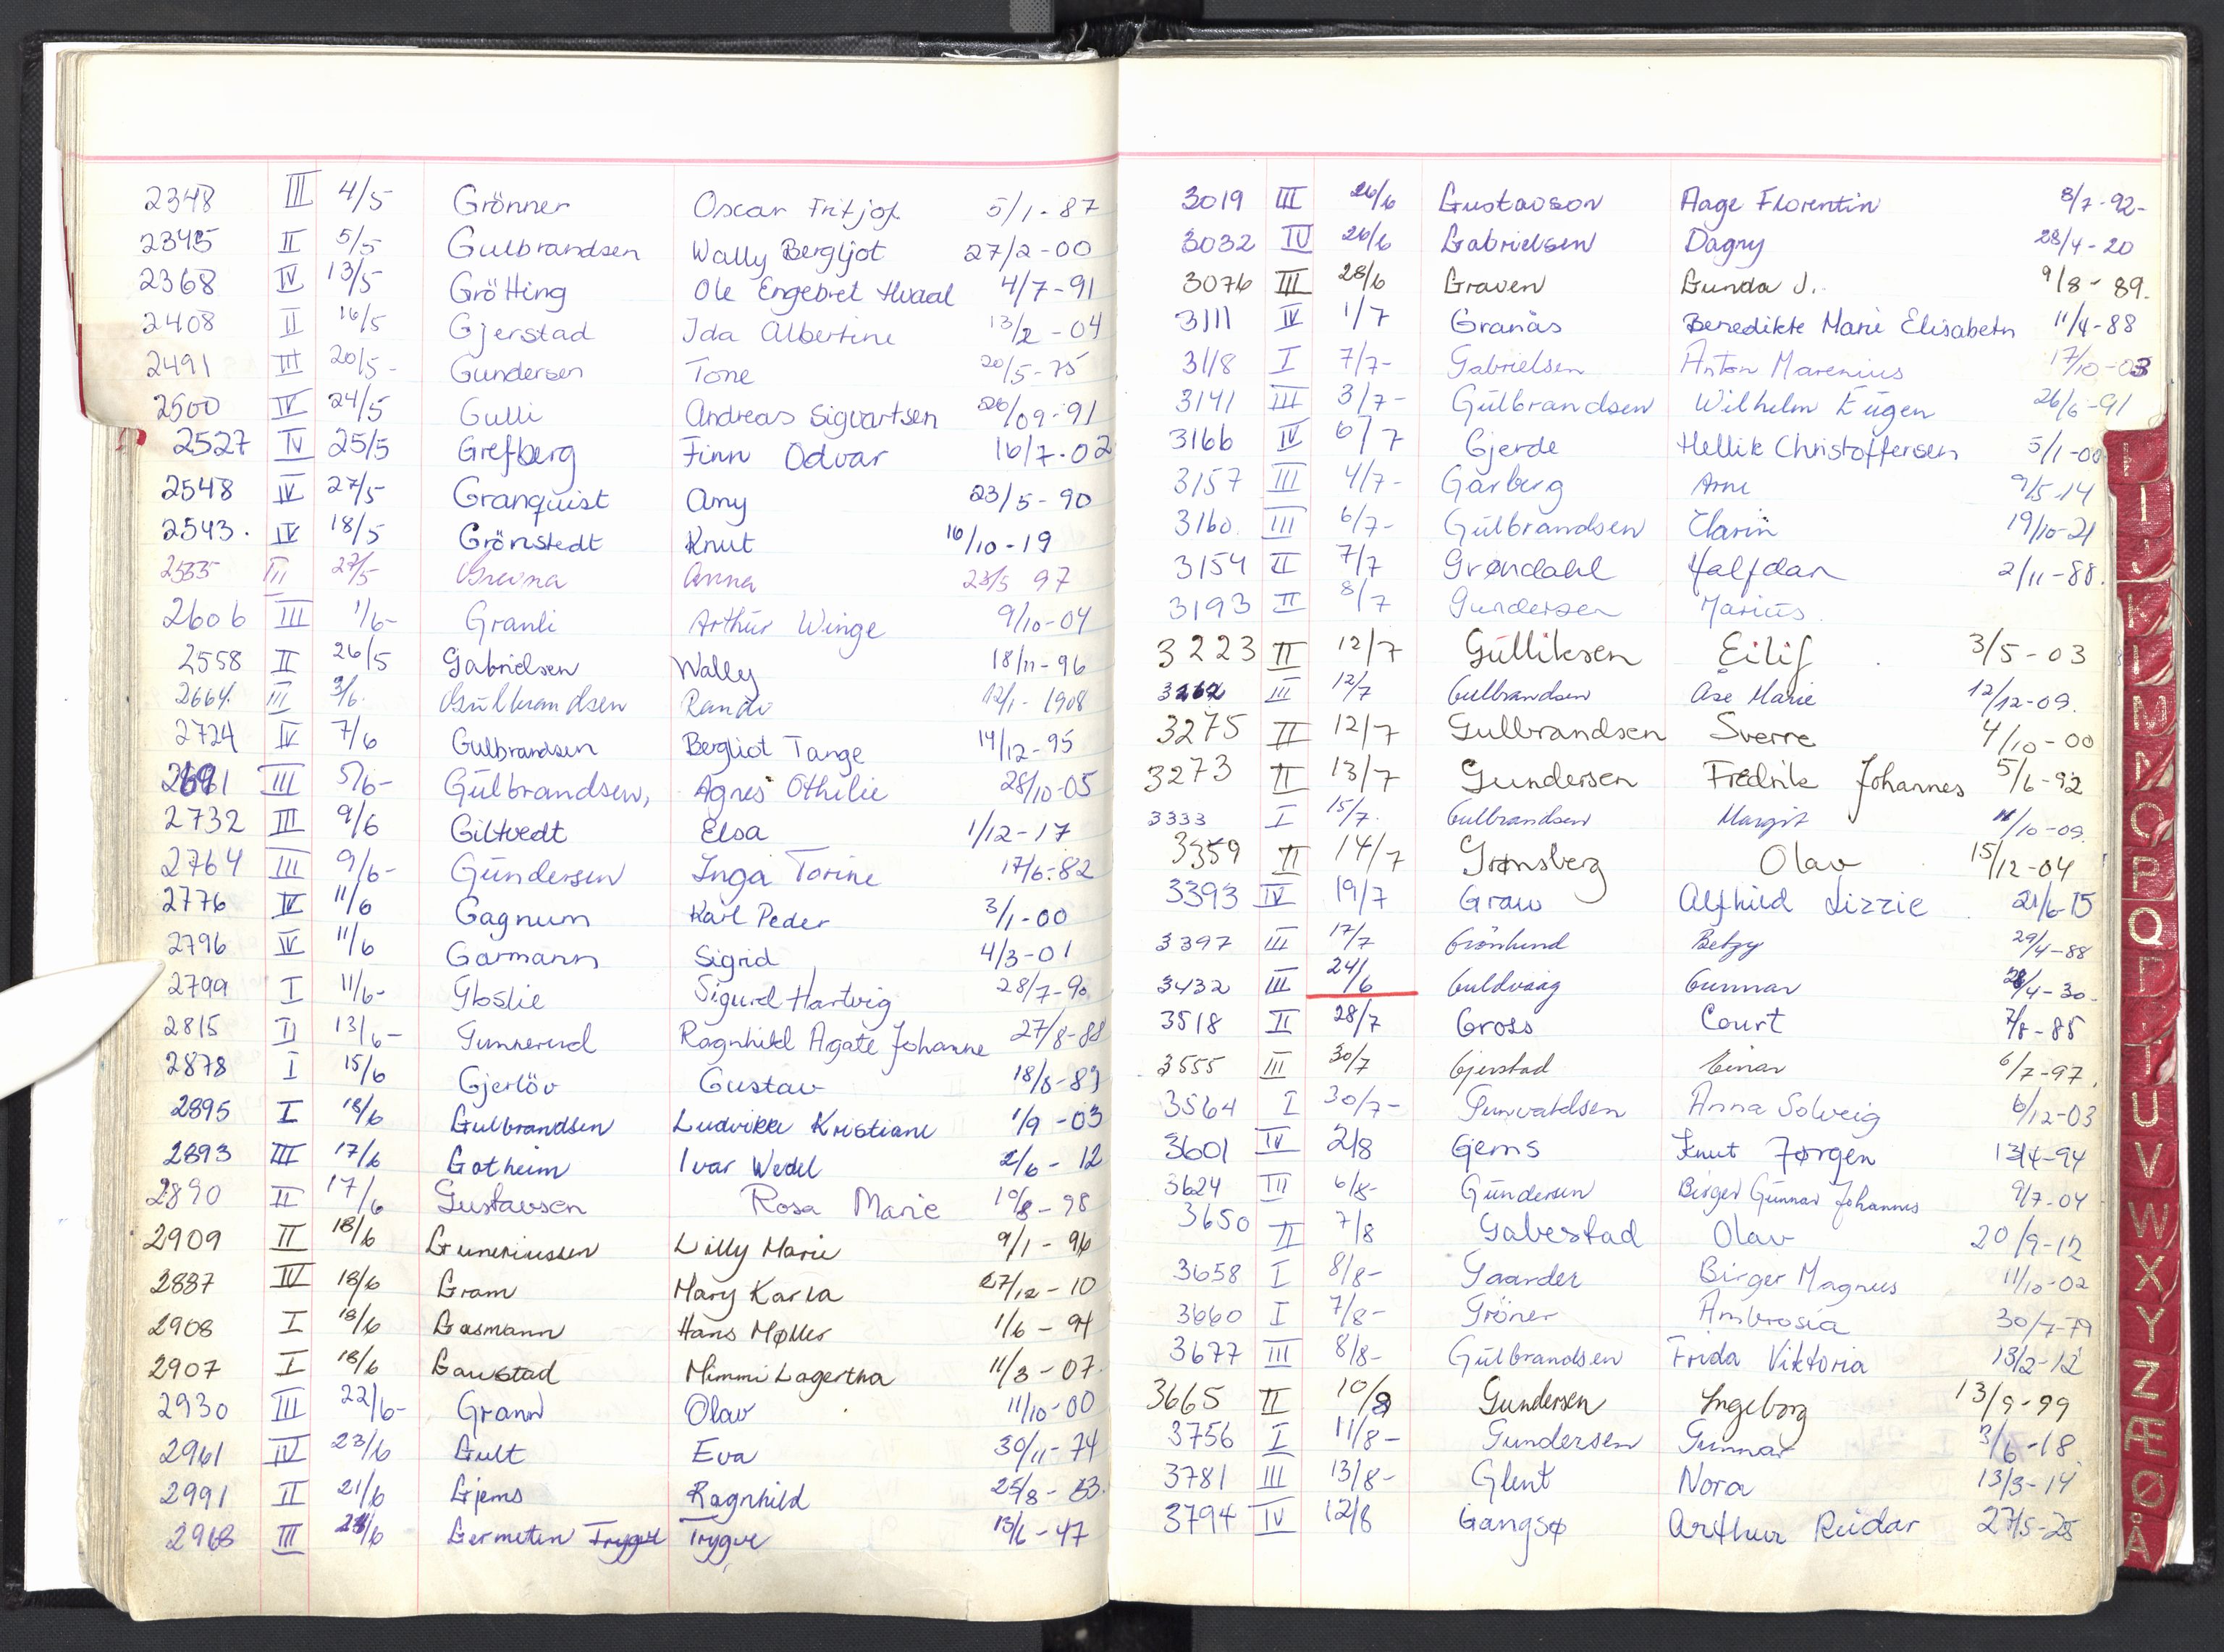 2348 III 4/5 Grönner Oscar Fritjof 5/1-87
2345 II 5/5 Gulbrandsen Wally Bergljot 27/2-00
2368 IV 13/5 Grötting Ole Engebret Hvaal 4/7-91
2408 II 16/5 Gjerstad Ida Albertine 13/2-04
2491 III 20/5- Gundersen Tone 20/5-75
2500 IV 24/5 Gulli Andreas Sigvartsen 26/09-91
2527 IV 25/5 Grefberg Finn Odvar 16/7-02
2548 IV 27/5 Granquist Amy 23/5-90
2543. IV 18/5 Grönstedt Knut 16/10-19
2535 III 27/5 Anna 23/5 97
2606 III 1/6- Granli Arthur Winge 9/10-04
2558 II 26/5 Gabrielsen Wally 18/11-96
2664. III 3/6. Gulbrandsen Randi 12/1-1908
2724 IV 7/6 Gulbrandsen Bergliot Tange 14/12-95
III 5/6- Gulbrandsen, Agnes Othilie 28/10-05
2732 III 9/6 Giltvedt Elsa 1/12-17
2764 III 9/6- Gundersen Inga Torine 17/6-82
2776 IV 11/6 Gagnum Karl Peder 3/1-00
2796 IV 11/6 Garmann Sigrid 4/3-01
2799 I 11/6- Gloslie Sigurd Hartvig 28/7-90
2815 II 13/6- Gunnerud Ragnhild Agate Johanne 27/8-88
2878 I 15/6 Gjerlöv Gustav 18/8-89
2895 I 18/6 Gulbrandsen Ludvikke Kristiane 1/9-03
2893 III 17/6 Gotheim Ivar Wedel 2/6-12
2890 II 17/6 Gustavsen Rosa Marie 10/8-98
2909 II 18/6 Guneriussen Lilly Marie 9/1-96
2887 IV 18/6 Gram Mary Karla 27/12-10
2908 I 18/6 Gasmann Hans Møller 1/6-94
2907 I 18/6 Gaustad Mimmi Lagertha 11/3-07.
2930 III 22/6- Grann Olav 11/10-00
2961 IV 23/6 Gult Eva 30/11-74
2991 II 21/6 Gjems Ragnhild 25/8-83.
2968 III Germeten Trygve Trygve 13/6-47
3019 III 26/6 Gustavson Aage Florentin 8/7-92-
3032 IV 26/6 Gabrielsen Dagny 28/4-20
3076 III 28/6 Graven Gunda J. 9/8-89.
3111 IV 1/7 Granås Benedikte Marie Elisabeth 11/4-88
3118 I 7/7- Gabrielsen Anton Marenius 17/10-03
3141 III 3/7- Gulbrandsen Wilhelm Eugen 26/6-91
3166 IV 6/7 Gjerde Hellik Christoffersen 5/1-00
3157 III 4/7- Garberg Arne 9/5-14
3160. III 6/7- Gulbrandsen Clarin 19/10-21
3154 II 7/7 Grøndahl Halfdan 2/11-88.
3193 II 8/7 Gundersen Marius.
3223 II 12/7 Gulliksen Eilif 3/5-03
3262 III 12/7 Gulbrandsen Åse Marie 12/12-09.
3275 II 12/7 Gullbrandsen Sverre 4/10-00
3273 II 13/7 Gundersen Fredrik Johannes 5/6-92
3333 I 15/7. Gulbrandsen Margit 11/10-09.
3359 II 14/7 Grønsberg Olav 15/12-04
3393 IV 19/7 Graw Alfhild Lizzie 21/6-15
3397 III 17/7 Grönlund Betzy 29/4-88
3432 III 24/6 Guldvaag Gunnar 28/4-30.
3518 II 28/7 Gross Court 7/8-85
3555 III 30/7 Gjerstad Einar 6/7-97.
3564 I 30/7- Gunvaldsen Anna Solveig 6/12-03
3601 IV 2/8 Gjems Knut Jørgen 13/4-94
3624 III 6/8- Gundersen Birger Gunnar Johannes 9/7-04
3650 II 7/8 Gabestad Olav 20/9-12
3658 I 8/8- Gaarder Birger Magnus 11/10-02
3660 I 7/8- Gröner Ambrosia 30/7-79
3677 III 8/8- Gulbrandsen Frida Viktoria 13/2-12
3665 II 10/8 Gundersen Ingeborg 13/9-99
3756 I 11/8- Gundersen Gunnar 3/6-18
3781 III 13/8- Glent Nora 13/3-14
3794 IV 12/8 Gangsø Arthur Reidar 27/5-25
I
J
K
L
M
N
O
P
Q
R
T
U
V
W
X
Y
Z
Æ
Ø
Å